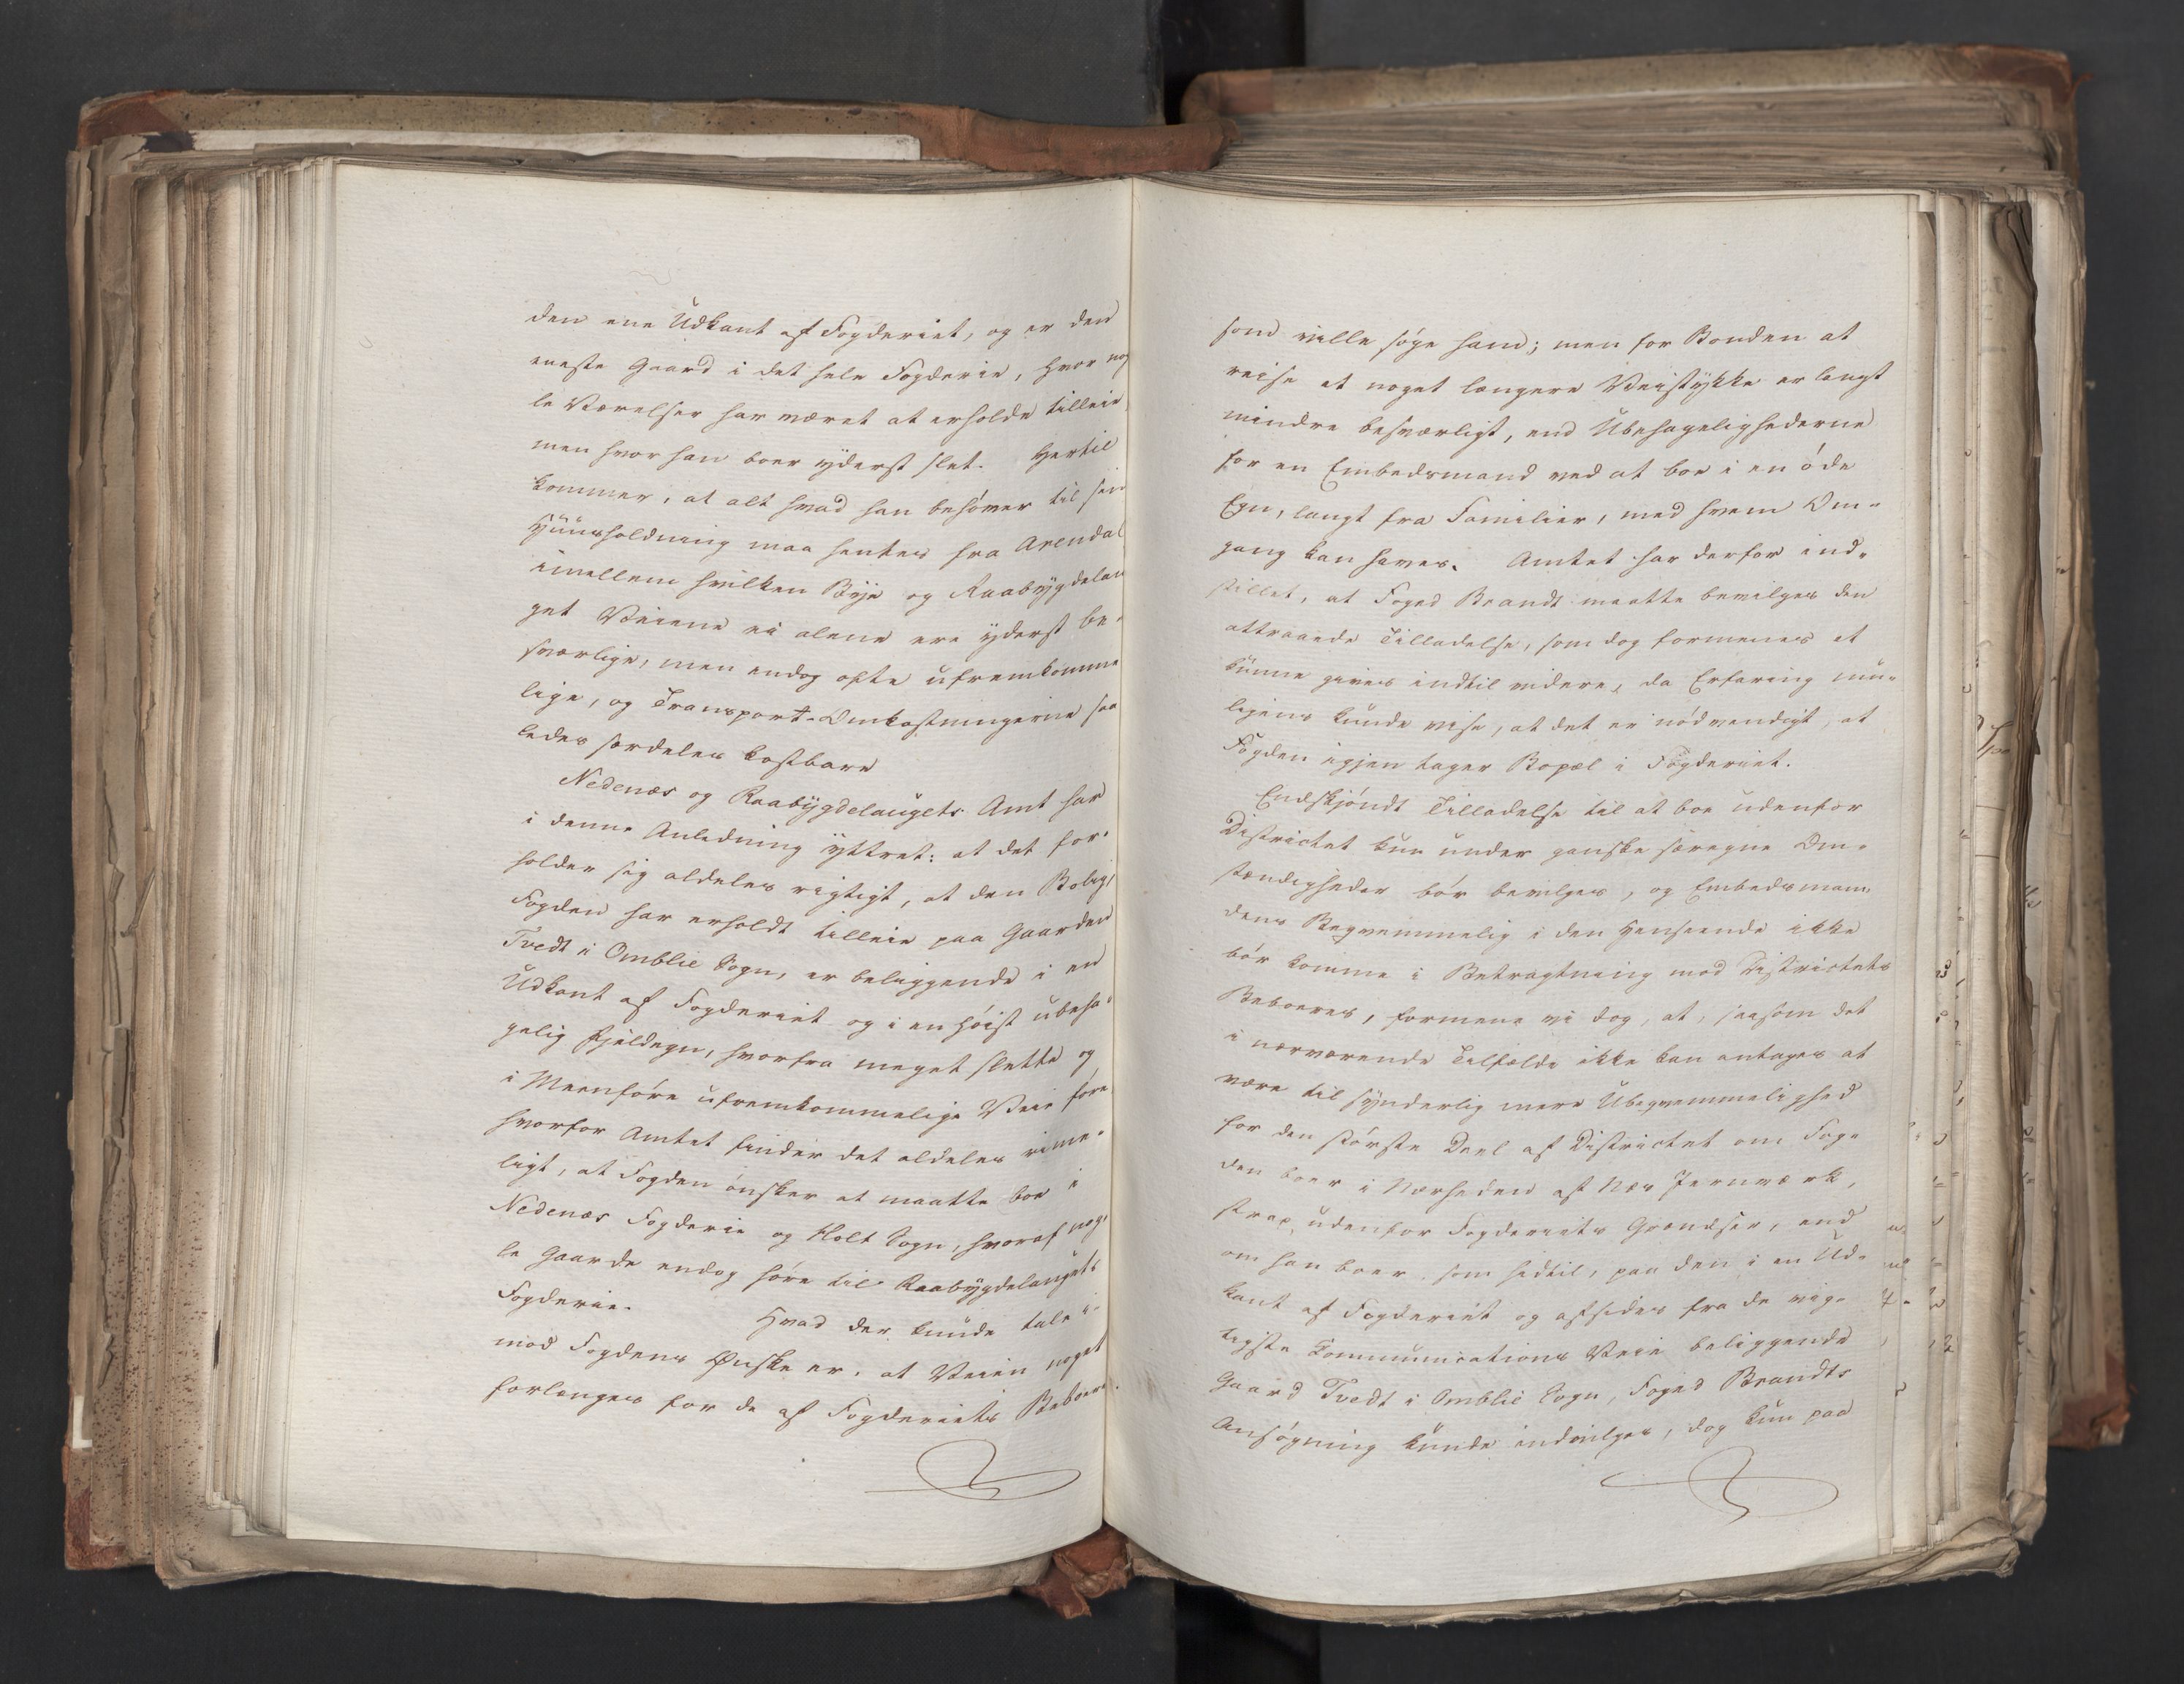 den ene Udkant af Fogderiet, og er den
eneste Gaard i det hele Fogderie, hvor nog
le Værelser har været at erholde tilleie,
men hvor han boer yderst slet. Hertil
kommer, at alt hvad han behøver til sin
Huusholdning maa hentes fra Arendal
imellem hvilken Bye og Raabygdelau
get Veiene ei alene ere yderst be-
sværlige, men endog ofte ufremkomme
lige, og Transport-Omkostningerne saa
ledes særdeles kostbare
Nedenæs og Raabygdelaugets Amt har
i denne Anledning yttret: at det for-
holder sig aldeles rigtigt, at den Bolig,
Fogden har erholdt tilleie paa Gaarden
Tvedt i Omblie Sogn, er beliggende i en
Udkant af Fogderiet og i en høist ubeha-
gelig Fjeldegn, hvorfra meget slette og
i Meenføre ufremkommelige Veie føre,
hvorfor Amtet finder det aldeles rime-
ligt, at Fogden ønsker at maatte boe i
Nedenæs Fogderie og Holt Sogn, hvoraf nog-
le Gaarde endog høre til Raabygdelaugets
Fogderie. Hvad der kunde tale i-
mod Fogdens Ønske er, at Veien noget
forlænges for de af Fogderiets Beboere,
som ville søge ham; men for Bonden at
reise et noget længere Veistykke er langt
mindre besværligt, end Ubehagelighederne
for en Embedsmand ved at boe i en øde
Egn, langt fra Familier, med hvem Om-
gang kan haves. Amtet har derfor ind-
stillet, at Foged Brandt maatte bevilges den
attraaede Tilladelse, som dog formenes at
kunne gives indtil videre, da Erfaring mu-
ligens kunde vise, at det er nødvendigt, at
Fogden igjen tager Bopæl i Fogderiet.
Endskjøndt Tilladelse til at boe udenfor
Districtet kun under ganske særegne Om-
stændigheder bør bevilges, og Embedsman-
dens Beqvemmelig i den Henseende ikke
bør komme i Betragtning mod Districtets
Beboeres, formene vi dog, at, saasom det
i nærværende Tilfælde ikke kan antages at
være til synderlig mere Ubeqvemmelighed
for den største Deel af Districtet om Fog-
den boer i Nærheden af Næs Jernværk,
strax udenfor Fogderiets Grændser, end
om han boer, som hidtil, paa den i en Ud-
kant af Fogderiet og afsides fra de vig-
tigste Communications Veie beliggende
Gaard Tvedt i Omblie Sogn, Foged Brandts
Ansøgning kunde indvilges, dog kun paa